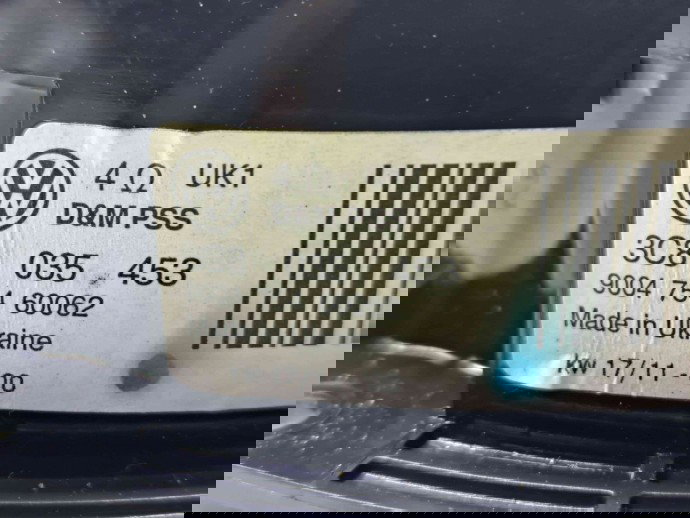 4 Ω UK1
D&M PSS
3C8 035 453
9004 75A 60062
Made in Ukraine
KW 17/11 -08